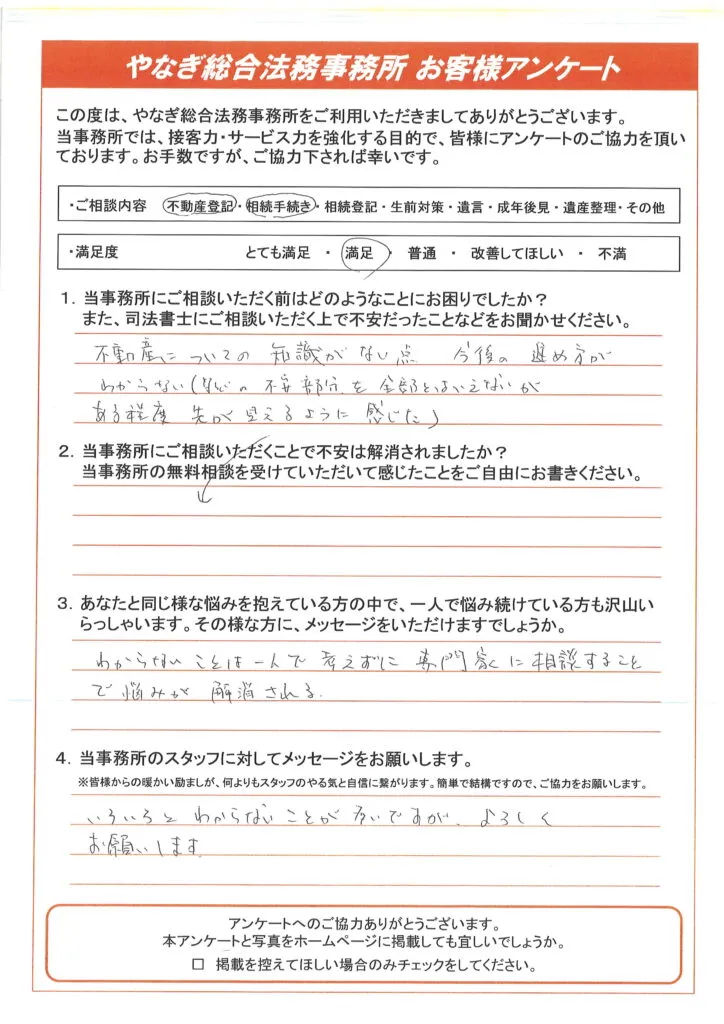 やなぎ総合法務事務所 お客様アンケート
この度は、やなぎ総合法務事務所をご利用いただきましてありがとうございます。
当事務所では、接客力・サービス力を強化する目的で、皆様にアンケートのご協力を頂い
ております。お手数ですが、ご協力下されば幸いです。
・ご相談内容 不動産登記・相続手続き・相続登記・生前対策・遺言・成年後見・遺産整理・その他
・満足度 とても満足 ・ 満足 ・ 普通 ・ 改善してほしい ・ 不満
1. 当事務所にご相談いただく前はどのようなことにお困りでしたか?
また、司法書士にご相談いただく上で不安だったことなどをお聞かせください。
不動産についての知識がない点 今後の進め方が
わからない(などの不安部分を全部とはいえないが
ある程度先が見えるように感じた)
2. 当事務所にご相談いただくことで不安は解消されましたか?
当事務所の無料相談を受けていただいて感じたことをご自由にお書きください。
3. あなたと同じ様な悩みを抱えている方の中で、一人で悩み続けている方も沢山い
らっしゃいます。その様な方に、メッセージをいただけますでしょうか。
わからないことは一人で考えずに専門家に相談すること
で悩みが解消される。
4. 当事務所のスタッフに対してメッセージをお願いします。
※皆様からの暖かい励ましが、何よりもスタッフのやる気と自信に繋がります。簡単で結構ですので、ご協力をお願いします。
いろいろとわからないことが多いですが、よろしく
お願いします。
アンケートへのご協力ありがとうございます。
本アンケートと写真をホームページに掲載しても宜しいでしょうか。
□ 掲載を控えてほしい場合のみチェックをしてください。